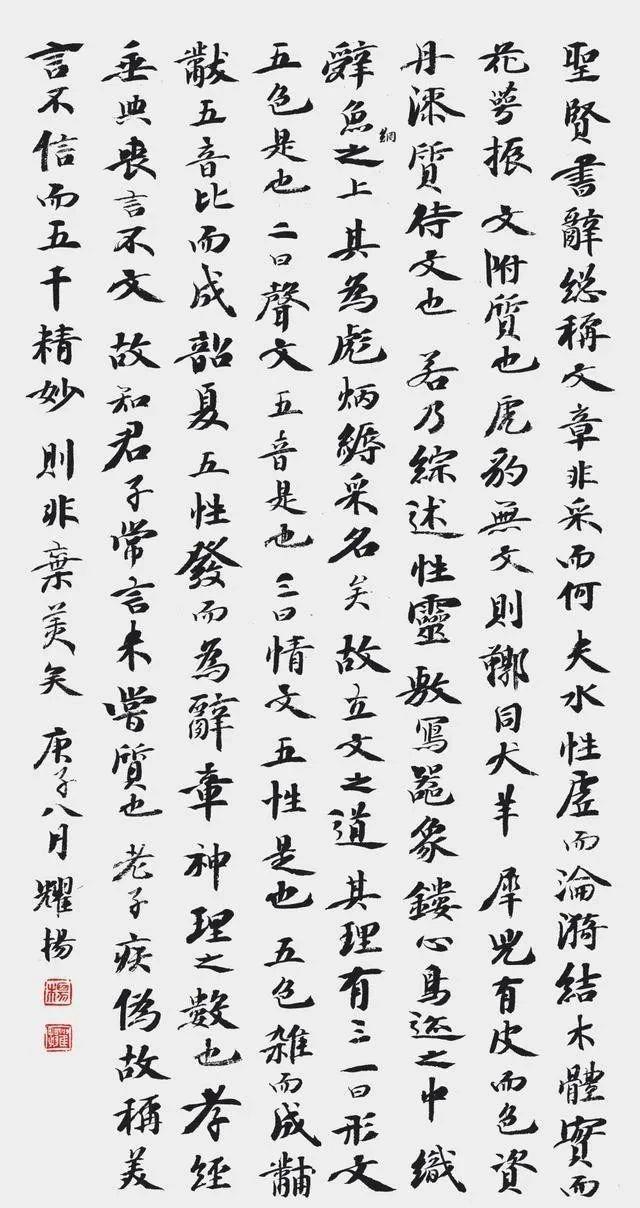 聖賢書辭總稱文章非采而何夫水性虛而淪漪結木體實而
花萼振文附質也虎豹無文則鞹同犬羊犀兕有皮而色資
丹漆質待文也若乃綜述性靈敷寫器象鏤心鳥迹之中織
辭魚網之上其為彪炳縟采名矣故立文之道其理有三一曰形文
五色是也二曰聲文五音是也三曰情文五性是也五色雜而成黼
黻五音比而成韶夏五性發而為辭章神理之數也孝經
垂典喪言不文故知君子常言未嘗質也老子疾偽故稱美
言不信而五千精妙則非棄美矣庚子八月耀楊